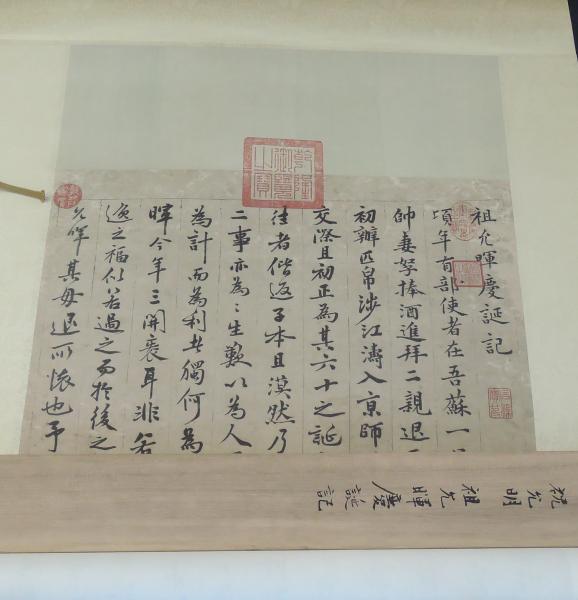 祖允暉慶誕記
頃年有部使者在吾蘇一
帥妻孥捧酒進拜二親退
初辦匹帛涉江濤入京師
交際且初正為其六十之誕
往者偕返子本且漠然乃
二事亦為〻生歎以為人
為計而為利者獨何為
暉今年三開袠耳非若
過之福似若過之而於後之
允暉其毋退所懷也予
乾隆御覽之寶
祝允明
祖允暉慶誕記